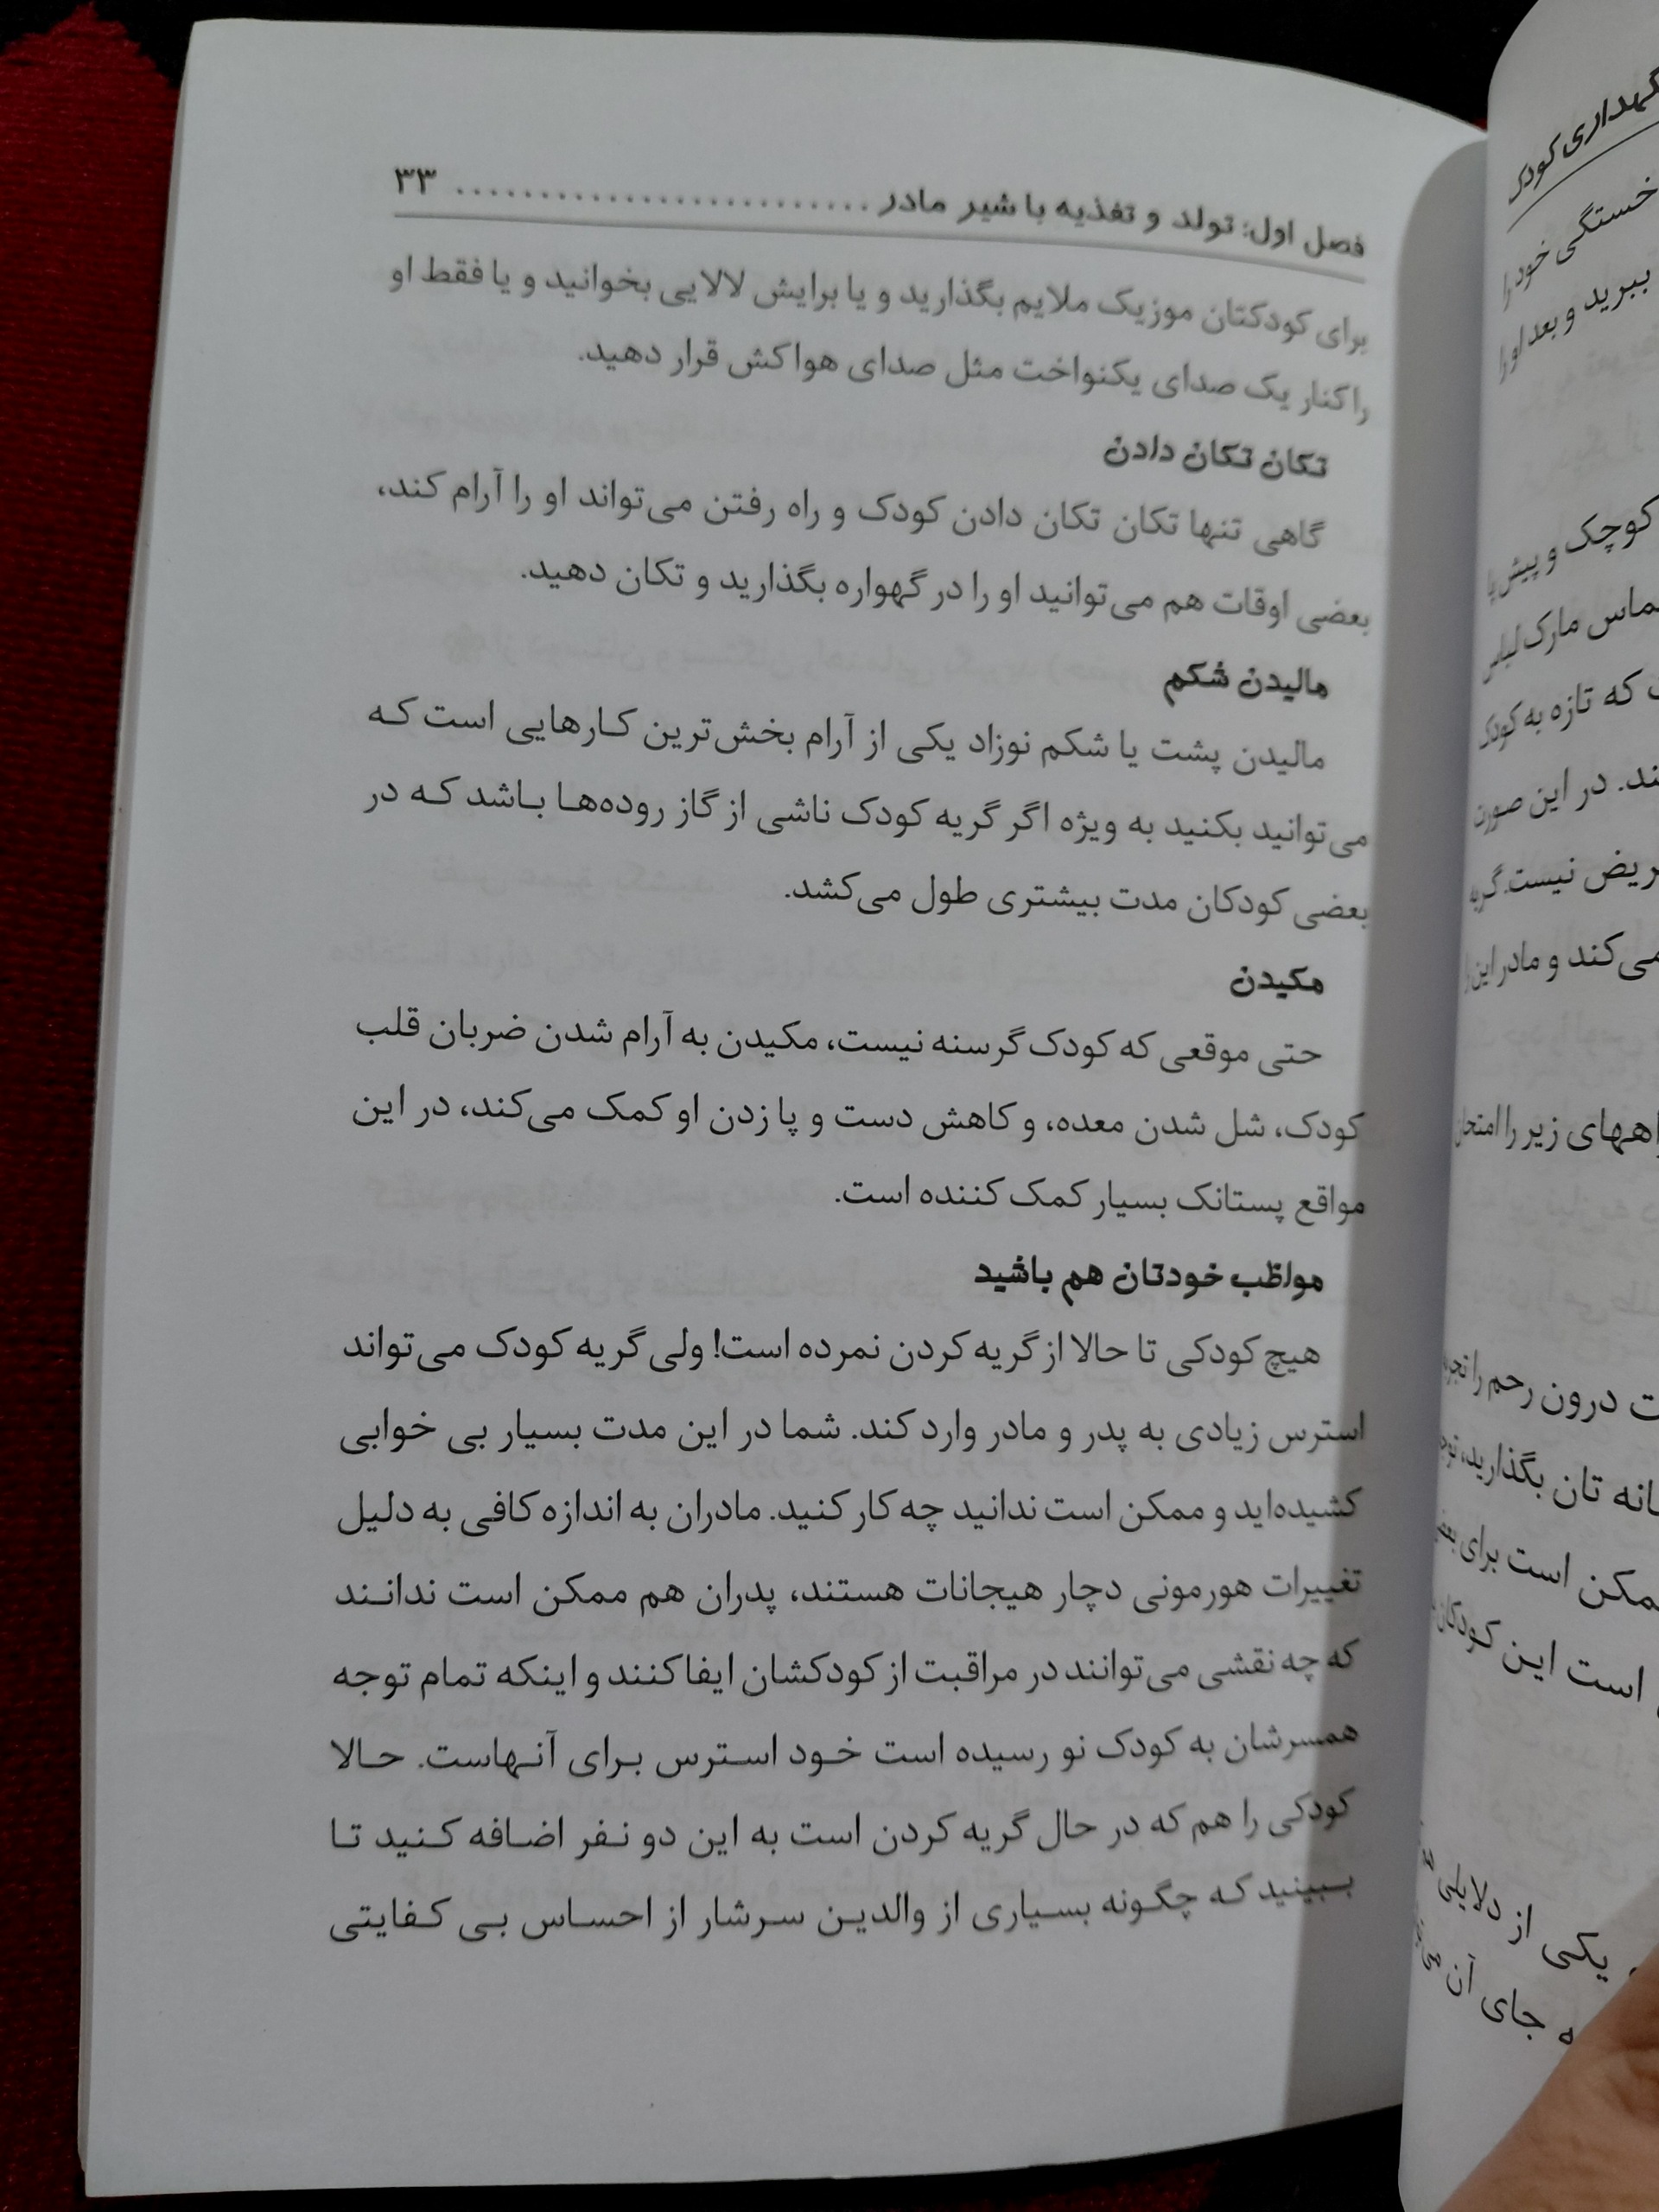 فصل اول: تولد و تغذیه با شیر مادر .......................... ۳۳
برای کودکتان موزیک ملایم بگذارید و یا برایش لالایی بخوانید و یا فقط او
را کنار یک صدای یکنواخت مثل صدای هواکش قرار دهید.
تکان تکان دادن
گاهی تنها تکان تکان دادن کودک و راه رفتن می‌تواند او را آرام کند،
بعضی اوقات هم می‌توانید او را در گهواره بگذارید و تکان دهید.
مالیدن شکم
مالیدن پشت یا شکم نوزاد یکی از آرام بخش‌ترین کارهایی است که
می‌توانید بکنید به ویژه اگر گریه کودک ناشی از گاز روده‌ها باشد که در
بعضی کودکان مدت بیشتری طول می‌کشد.
مکیدن
حتی موقعی که کودک گرسنه نیست، مکیدن به آرام شدن ضربان قلب
کودک، شل شدن معده، و کاهش دست و پا زدن او کمک می‌کند، در این
مواقع پستانک بسیار کمک کننده است.
مواظب خودتان هم باشید
هیچ کودکی تا حالا از گریه کردن نمرده است! ولی گریه کودک می‌تواند
استرس زیادی به پدر و مادر وارد کند. شما در این مدت بسیار بی خوابی
کشیده‌اید و ممکن است ندانید چه کار کنید. مادران به اندازه کافی به دلیل
تغییرات هورمونی دچار هیجانات هستند، پدران هم ممکن است ندانند
که چه نقشی می‌توانند در مراقبت از کودکشان ایفا کنند و اینکه تمام توجه
همسرشان به کودک نو رسیده است خود استرس برای آنهاست. حالا
کودکی را هم که در حال گریه کردن است به این دو نفر اضافه کنید تا
ببینید که چگونه بسیاری از والدین سرشار از احساس بی کفایتی
گهداری کودک
خستگی خود را
ببرید و بعد او را
کوچک و پیش
ماس مارک
که تازه به کودک
ند. در این صورت
ریض نیست. گریه
می‌کند و مادر این
اههای زیر را امتحان
ت درون رحم را
انه تان بگذارید،
مکن است برای
است این کودکان
یکی از دلایلی
ه جای آن